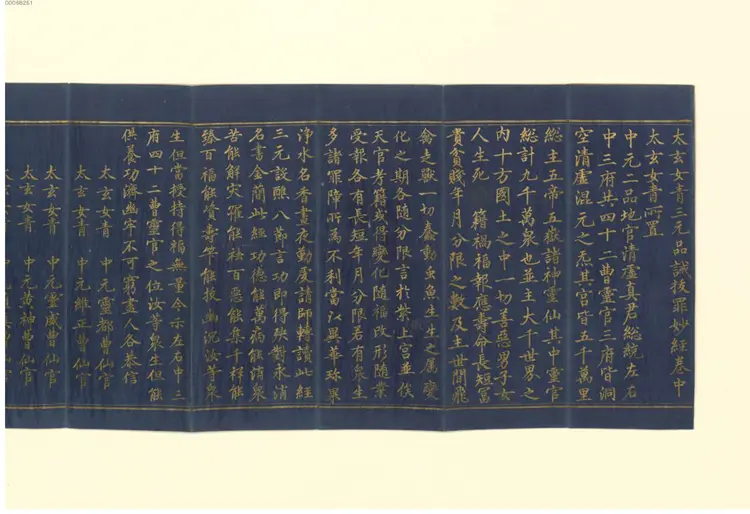 太玄女青三元品誡拔罪妙經卷中
太玄女青所置
中元二品地官清虛真君總統左右
中三府共四十二曹靈官三府皆洞
空清虛混元之炁其宮皆五千萬里
總主五帝五嶽諸神靈仙其中靈官
總計九千萬眾也並主大千世界之
內十方國土之中一切善惡男子女
人生死 籍禍福報應壽命長短富
貴貧賤年月分限之數及主世間飛
禽走獸一切蠢動虫魚生生之屬變
化之期各隨分限言於紫上宮並俟
天官考籍或得變化隨福改形隨業
受報各有長短年月分限若有眾生
多諸罪障所為不利當以異華珎菓
淨水名香晝夜勤虔請師轉讀此經
三元設醮八節言功即得殃對永消
名書金簡此經功德能萬病能消衆
苦能解灾 能祛百惡能集千祥能
臻百福能資壽筭能拔幽沉汝等衆
生但當授持得福無量今示左右中三
府四十二曹靈官之位汝等衆生但能
供養功濟幽牢不可窮盡人各恭信
太玄女青 中元靈都曹仙官
太玄女青 中元維正曹仙官
太玄女青 中元靈威曹仙官
太玄女青 中元黃神曹仙官